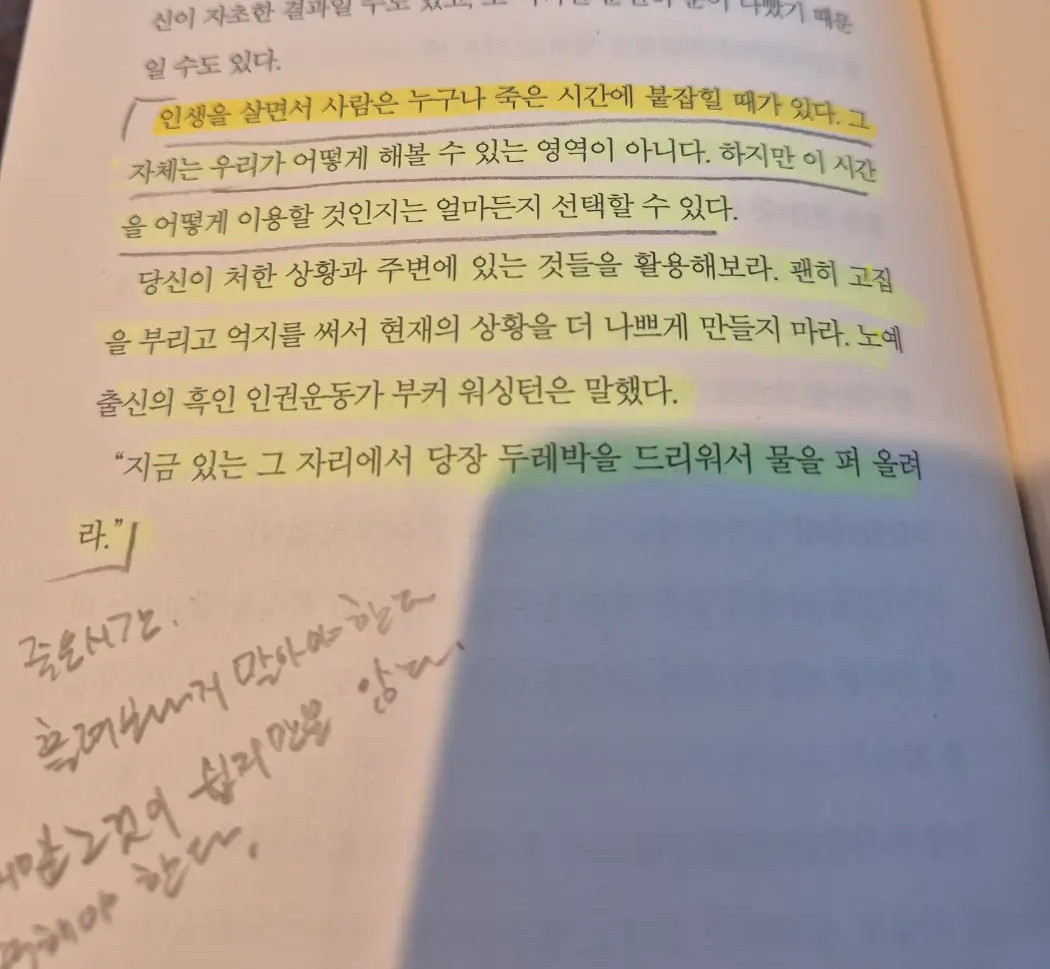 신이 자초한 결과일 수도 있고, 운이 나빴기 때문
일 수도 있다.
인생을 살면서 사람은 누구나 죽은 시간에 붙잡힐 때가 있다. 그
자체는 우리가 어떻게 해볼 수 있는 영역이 아니다. 하지만 이 시간
을 어떻게 이용할 것인지는 얼마든지 선택할 수 있다.
당신이 처한 상황과 주변에 있는 것들을 활용해보라. 괜히 고집
을 부리고 억지를 써서 현재의 상황을 더 나쁘게 만들지 마라. 노예
출신의 흑인 인권운동가 부커 워싱턴은 말했다.
“지금 있는 그 자리에서 당장 두레박을 드리워서 물을 퍼 올려
라.”
죽은시간.
흘려보내지 말아야 한다
그것이 쉽지만은 않다.
해야 한다.